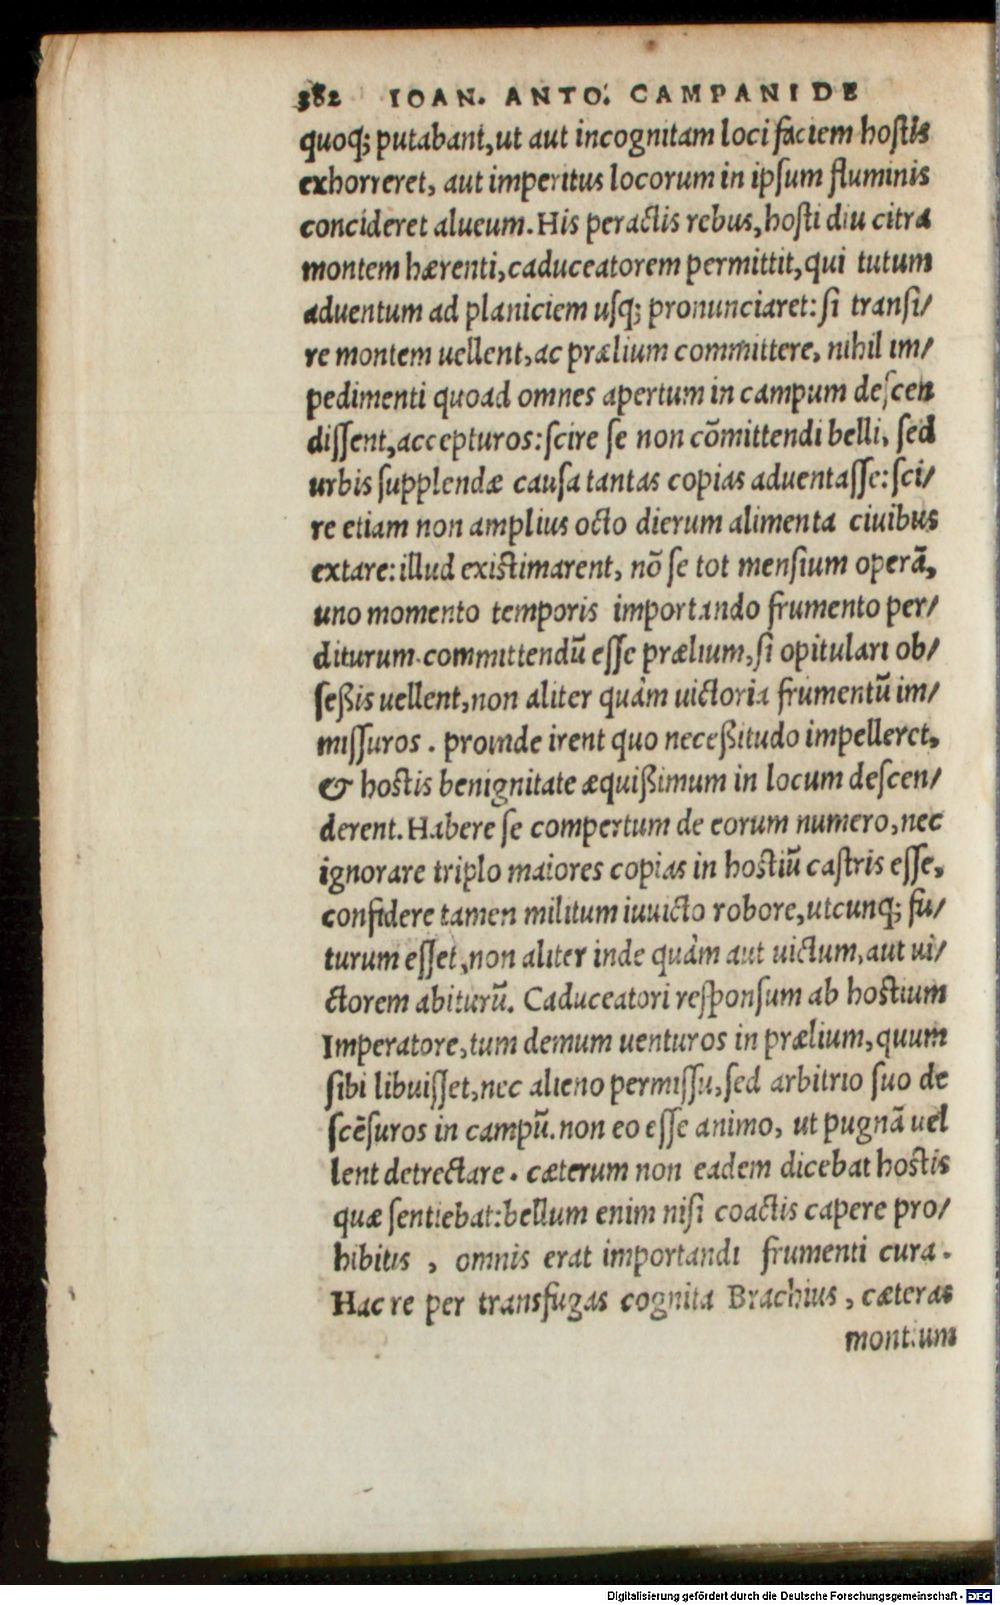 382 IOAN. ANTO. CAMPANI DE
quoq; putabant, ut aut incognitam loci faciem hostis
exhorreret, aut imperitus locorum in ipsum fluminis
concideret alueum. His peractis rebus, hosti diu citra
montem hærenti, caduceatorem permittit, qui tutum
aduentum ad planiciem usq; pronunciaret: si transi/
re montem uellent, ac prælium committere, nihil im/
pedimenti quoad omnes apertum in campum descen
dissent, accepturos: scire se non cõmittendi belli, sed
urbis supplendæ causa tantas copias aduentasse: sci/
re etiam non amplius octo dierum alimenta ciuibus
extare: illud existimarent, nõ se tot mensium operã,
uno momento temporis importando frumento per/
diturum. committendũ esse prælium, si opitulari ob/
seßis uellent, non aliter quàm uictoria frumentũ im/
missuros. proinde irent quo neceßitudo impelleret,
& hostis benignitate æquißimum in locum descen/
derent. Habere se compertum de eorum numero, nec
ignorare triplo maiores copias in hostiũ castris esse,
confidere tamen militum iuuicto robore, utcunq; fu/
turum esset, non aliter inde quàm aut uictum, aut ui/
ctorem abiturũ. Caduceatori responsum ab hostium
Imperatore, tum demum uenturos in prælium, quum
sibi libuisset, nec alieno permissu, sed arbitrio suo de
scẽsuros in campũ. non eo esse animo, ut pugnã uel
lent detrectare. cæterum non eadem dicebat hostis
quæ sentiebat: bellum enim nisi coactis capere pro/
hibitis, omnis erat importandi frumenti cura.
Hac re per transfugas cognita Brachius, cæteras
montium
Digitalisierung gefördert durch die Deutsche Forschungsgemeinschaft - DFG